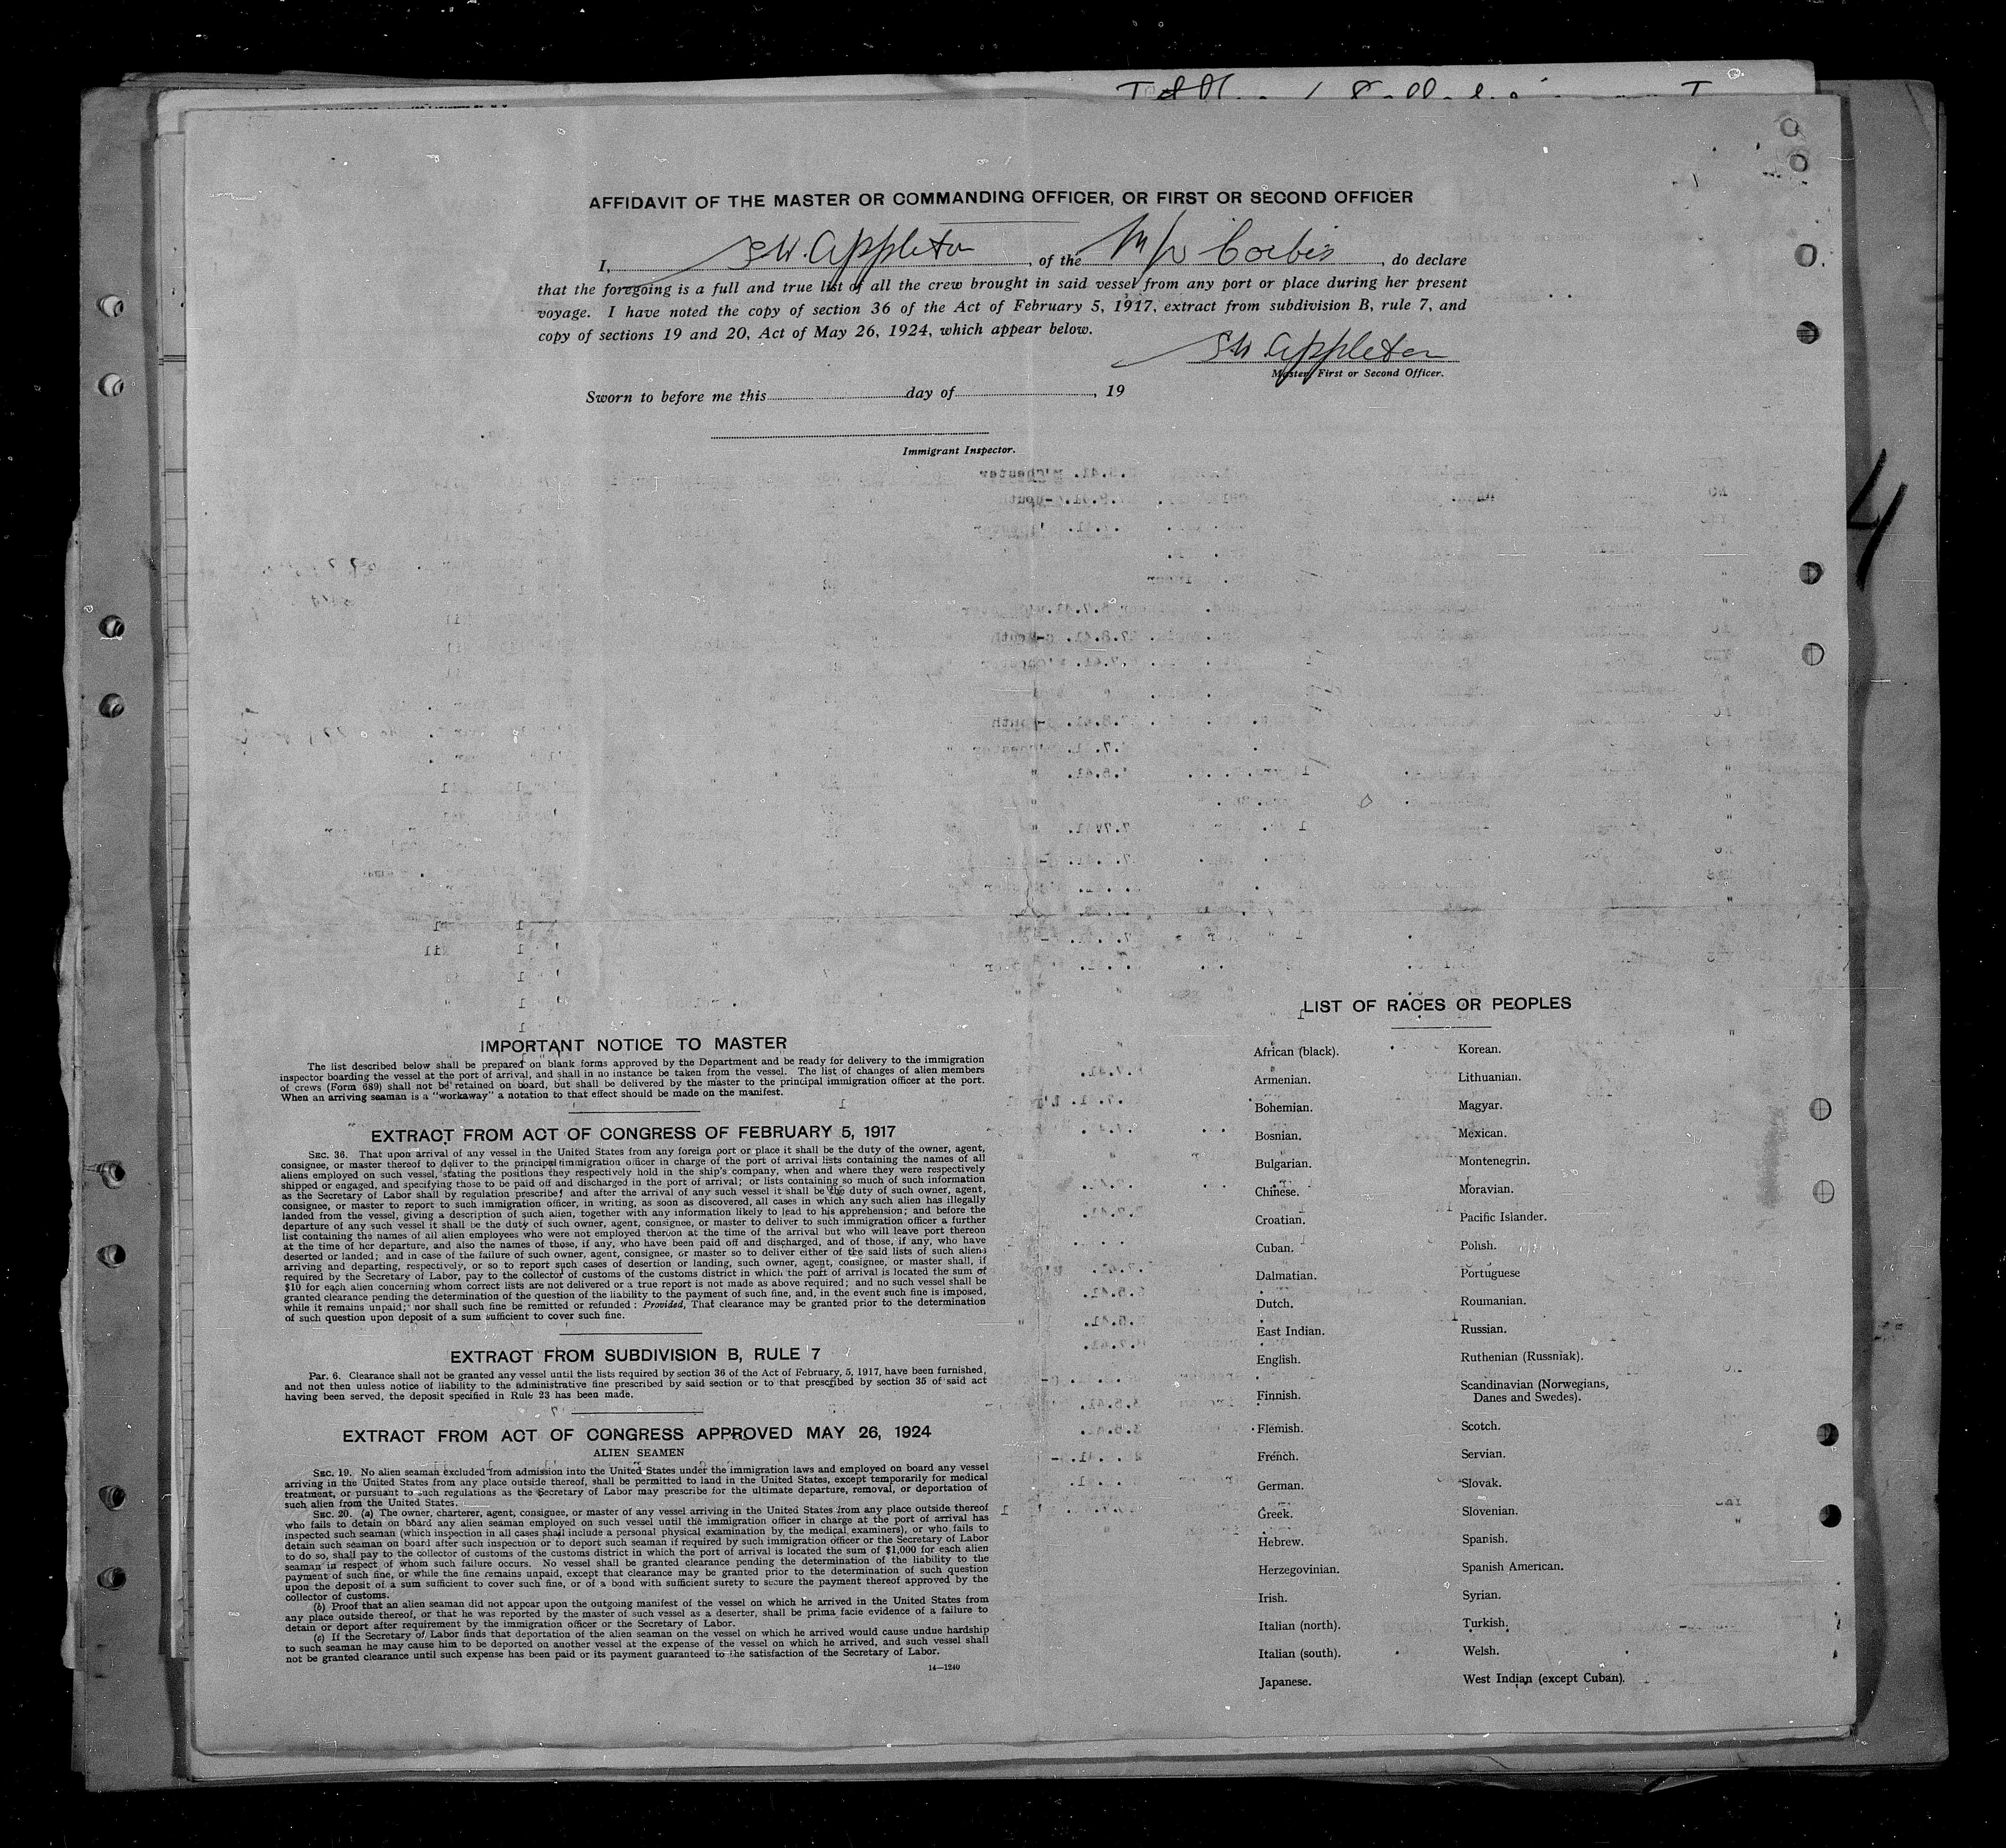 AFFIDAVIT OF THE MASTER OR COMMANDING OFFICER, OR FIRST OR SECOND OFFICER
I, S W. Appleton, of the M/V Corbis, do declare
that the foregoing is a full and true list of all the crew brought in said vessel from any port or place during her present
voyage. I have noted the copy of section 36 of the Act of February 5, 1917, extract from subdivision B, rule 7, and
copy of sections 19 and 20, Act of May 26, 1924, which appear below.
S W. Appleton
Master, First or Second Officer.
Sworn to before me this day of , 19
Immigrant Inspector.
4
IMPORTANT NOTICE TO MASTER
The list described below shall be prepared on blank forms approved by the Department and be ready for delivery to the immigration
inspector boarding the vessel at the port of arrival, and shall in no instance be taken from the vessel. The list of changes of alien members
of crews (Form 689) shall not be retained on board, but shall be delivered by the master to the principal immigration officer at the port.
When an arriving seaman is a "workaway" a notation to that effect should be made on the manifest.
EXTRACT FROM ACT OF CONGRESS OF FEBRUARY 5, 1917
SEC. 36. That upon arrival of any vessel in the United States from any foreign port or place it shall be the duty of the owner, agent,
consignee, or master thereof to deliver to the principal immigration officer in charge of the port of arrival lists containing the names of all
aliens employed on such vessel, stating the positions they respectively hold in the ship's company, when and where they were respectively
shipped or engaged, and specifying those to be paid off and discharged in the port of arrival; or lists containing so much of such information
as the Secretary of Labor shall by regulation prescribe; and after the arrival of any such vessel it shall be the duty of such owner, agent,
consignee, or master to report to such immigration officer, in writing, as soon as discovered, all cases in which any such alien has illegally
landed from the vessel, giving a description of such alien, together with any information likely to lead to his apprehension; and before the
departure of any such vessel it shall be the duty of such owner, agent, consignee, or master to deliver to such immigration officer a further
list containing the names of all alien employees who were not employed thereon at the time of the arrival but who will leave port thereon
at the time of her departure, and also the names of those, if any, who have been paid off and discharged, and of those, if any, who have
deserted or landed; and in case of the failure of such owner, agent, consignee, or master so to deliver either of the said lists of such aliens
arriving and departing, respectively, or so to report such cases of desertion or landing, such owner, agent, consignee, or master shall, if
required by the Secretary of Labor, pay to the collector of customs of the customs district in which the port of arrival is located the sum of
$10 for each alien concerning whom correct lists are not delivered or a true report is not made as above required; and no such vessel shall be
granted clearance pending the determination of the question of the liability to the payment of such fine, and, in the event such fine is imposed,
while it remains unpaid; nor shall such fine be remitted or refunded: Provided, That clearance may be granted prior to the determination
of such question upon deposit of a sum sufficient to cover such fine.
EXTRACT FROM SUBDIVISION B, RULE 7
Par. 6. Clearance shall not be granted any vessel until the lists required by section 36 of the Act of February, 5, 1917, have been furnished,
and not then unless notice of liability to the administrative fine prescribed by said section or to that prescribed by section 35 of said act
having been served, the deposit specified in Rule 23 has been made.
EXTRACT FROM ACT OF CONGRESS APPROVED MAY 26, 1924
ALIEN SEAMEN
SEC. 19. No alien seaman excluded from admission into the United States under the immigration laws and employed on board any vessel
arriving in the United States from any place outside thereof, shall be permitted to land in the United States, except temporarily for medical
treatment, or pursuant to such regulations as the Secretary of Labor may prescribe for the ultimate departure, removal, or deportation of
such alien from the United States.
SEC. 20. (a) The owner, charterer, agent, consignee, or master of any vessel arriving in the United States from any place outside thereof
who fails to detain on board any alien seaman employed on such vessel until the immigration officer in charge at the port of arrival has
inspected such seaman (which inspection in all cases shall include a personal physical examination by the medical examiners), or who fails to
detain such seaman on board after such inspection or to deport such seaman if required by such immigration officer or the Secretary of Labor
to do so, shall pay to the collector of customs of the customs district in which the port of arrival is located the sum of $1,000 for each alien
seaman in respect of whom such failure occurs. No vessel shall be granted clearance pending the determination of the liability to the
payment of such fine, or while the fine remains unpaid, except that clearance may be granted prior to the determination of such question
upon the deposit of a sum sufficient to cover such fine, or of a bond with sufficient surety to secure the payment thereof approved by the
collector of customs.
(b) Proof that an alien seaman did not appear upon the outgoing manifest of the vessel on which he arrived in the United States from
any place outside thereof, or that he was reported by the master of such vessel as a deserter, shall be prima facie evidence of a failure to
detain or deport after requirement by the immigration officer or the Secretary of Labor.
(c) If the Secretary of Labor finds that deportation of the alien seaman on the vessel on which he arrived would cause undue hardship
to such seaman he may cause him to be deported on another vessel at the expense of the vessel on which he arrived, and such vessel shall
not be granted clearance until such expense has been paid or its payment guaranteed to the satisfaction of the Secretary of Labor.
14—1240
LIST OF RACES OR PEOPLES
African (black). Korean.
Armenian. Lithuanian.
Bohemian. Magyar.
Bosnian. Mexican.
Bulgarian. Montenegrin.
Chinese. Moravian.
Croatian. Pacific Islander.
Cuban. Polish.
Dalmatian. Portuguese
Dutch. Roumanian.
East Indian. Russian.
English. Ruthenian (Russniak).
Finnish. Scandinavian (Norwegians,
Danes and Swedes).
Flemish. Scotch.
French. Servian.
German. Slovak.
Greek. Slovenian.
Hebrew. Spanish.
Herzegovinian. Spanish American.
Irish. Syrian.
Italian (north). Turkish.
Italian (south). Welsh.
Japanese. West Indian (except Cuban).